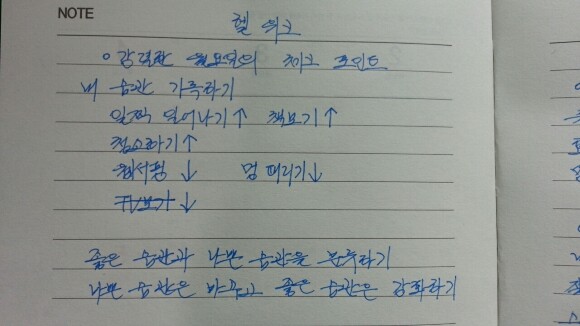 NOTE
헬 위크
○ 강력한 월요일의 체크 포인트
내 습관 기록하기
일찍 일어나기↑ 책보기↑
청소하기↑
웹서핑 ↓ 멍 때리기↓
TV보기 ↓
좋은 습관과 나쁜 습관을 분류하기
나쁜 습관은 바꾸고 좋은 습관은 강화하기